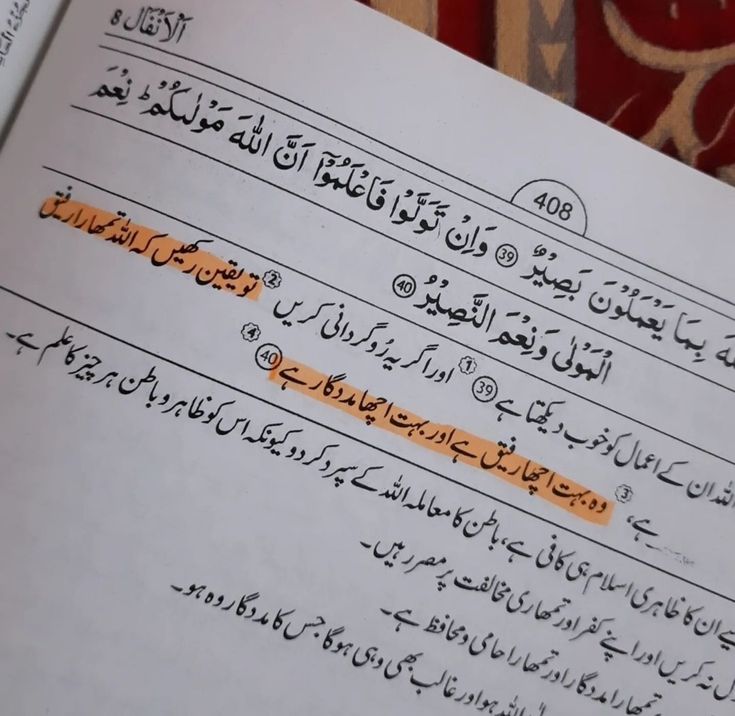 الْاَنْفَال 8
408
بِمَا يَعْمَلُوْنَ بَصِيْرٌ ㊴ وَاِنْ تَوَلَّوْا فَاعْلَمُوْٓا اَنَّ اللّٰهَ مَوْلٰىكُمْ ؕ نِعْمَ
الْمَوْلٰى وَنِعْمَ النَّصِيْرُ ㊵
اللہ ان کے اعمال کو خوب دیکھتا ہے ㊴ 1 اور اگر یہ رُوگردانی کریں 2 تو یقین رکھیں کہ اللہ تمھارا رفیق
ہے، 3 وہ بہت اچھا رفیق ہے اور بہت اچھا مددگار ہے ㊵ 4
ان کا ظاہری اسلام ہی کافی ہے، باطن کا معاملہ اللہ کے سپرد کر دو کیونکہ اس کو ظاہر و باطن ہر چیز کا علم ہے۔
نہ کریں اور اپنے کفر اور تمھاری مخالفت پر مصر رہیں۔
تمھارا مددگار اور تمھارا حامی و محافظ ہے۔
اللہ ہو اور غالب بھی وہی ہوگا جس کا مددگار وہ ہو۔